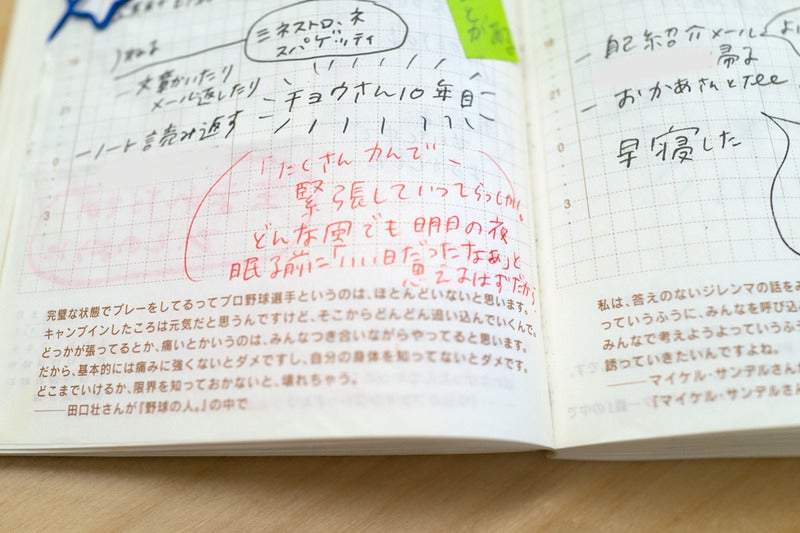 ミネストローネ
スパゲッティ
- 文章かいたり
メール返したり
チョウさん10年目
- ノート読み返す
「たくさんカんで
緊張していってらっしゃい。
どんな風でも明日の夜
眠る前に「いい日だったなぁ」と
思えるはずだから
完璧な状態でプレーをしてるってプロ野球選手というのは、ほとんどいないと思います。
キャンプインしたころは元気だと思うんですけど、そこからどんどん追い込んでいくんで。
どっかが張ってるとか、痛いとかいうのは、みんなつき合いながらやってると思います。
だから、基本的には痛みに強くないとダメですし、自分の身体を知ってないとダメです。
どこまでいけるか、限界を知っておかないと、壊れちゃう。
――田口壮さんが『野球の人。』の中で
- 自己紹介メール
帰宅
- おかあさんとtee
早寝した
私は、答えのないジレンマの話をみ
っていうふうに、みんなを呼び込
みんなで考えようよっていうふ
誘っていきたいんですよね。
――マイケル・サンデルさん
『マイケル・サンデルさん